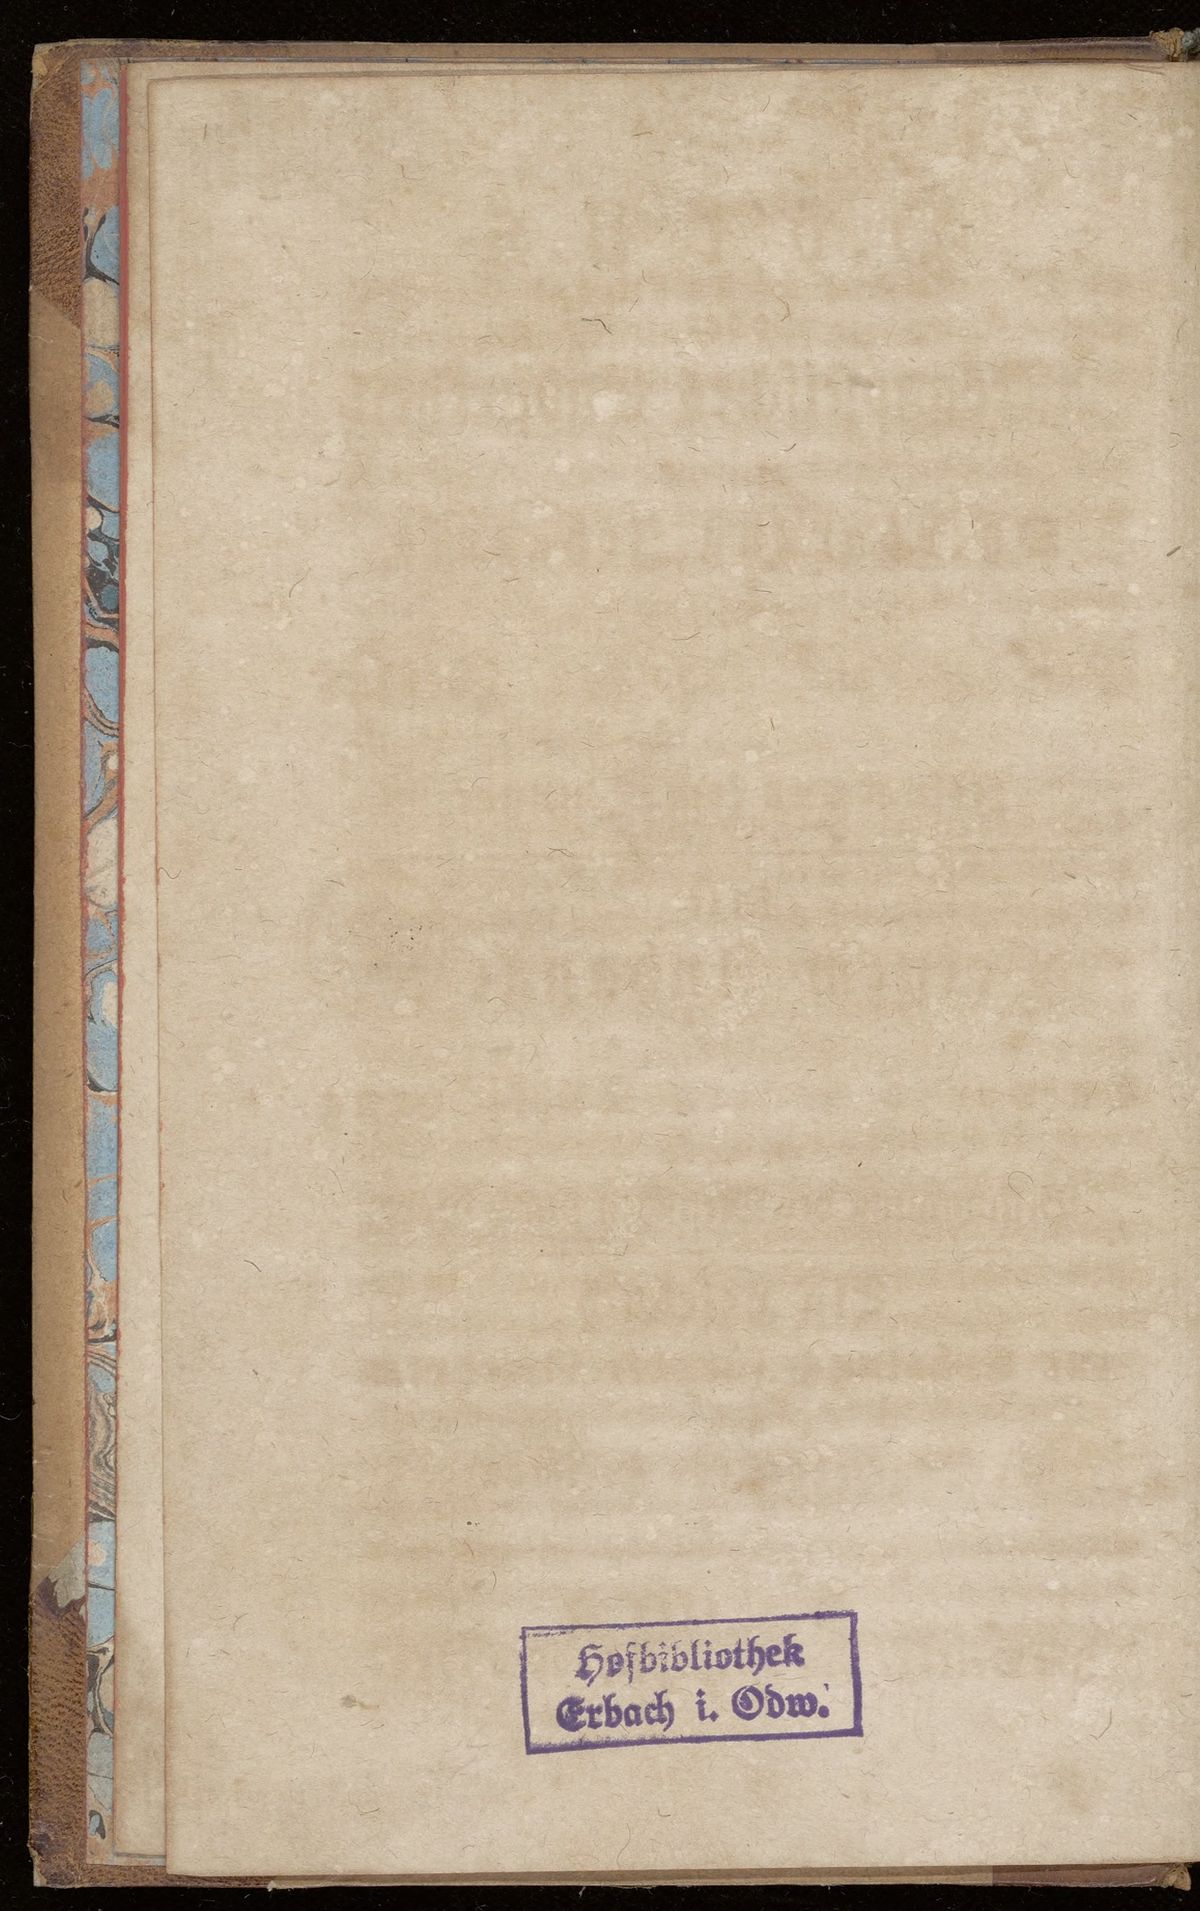 Hofbibliothek
Erbach i. Odw.